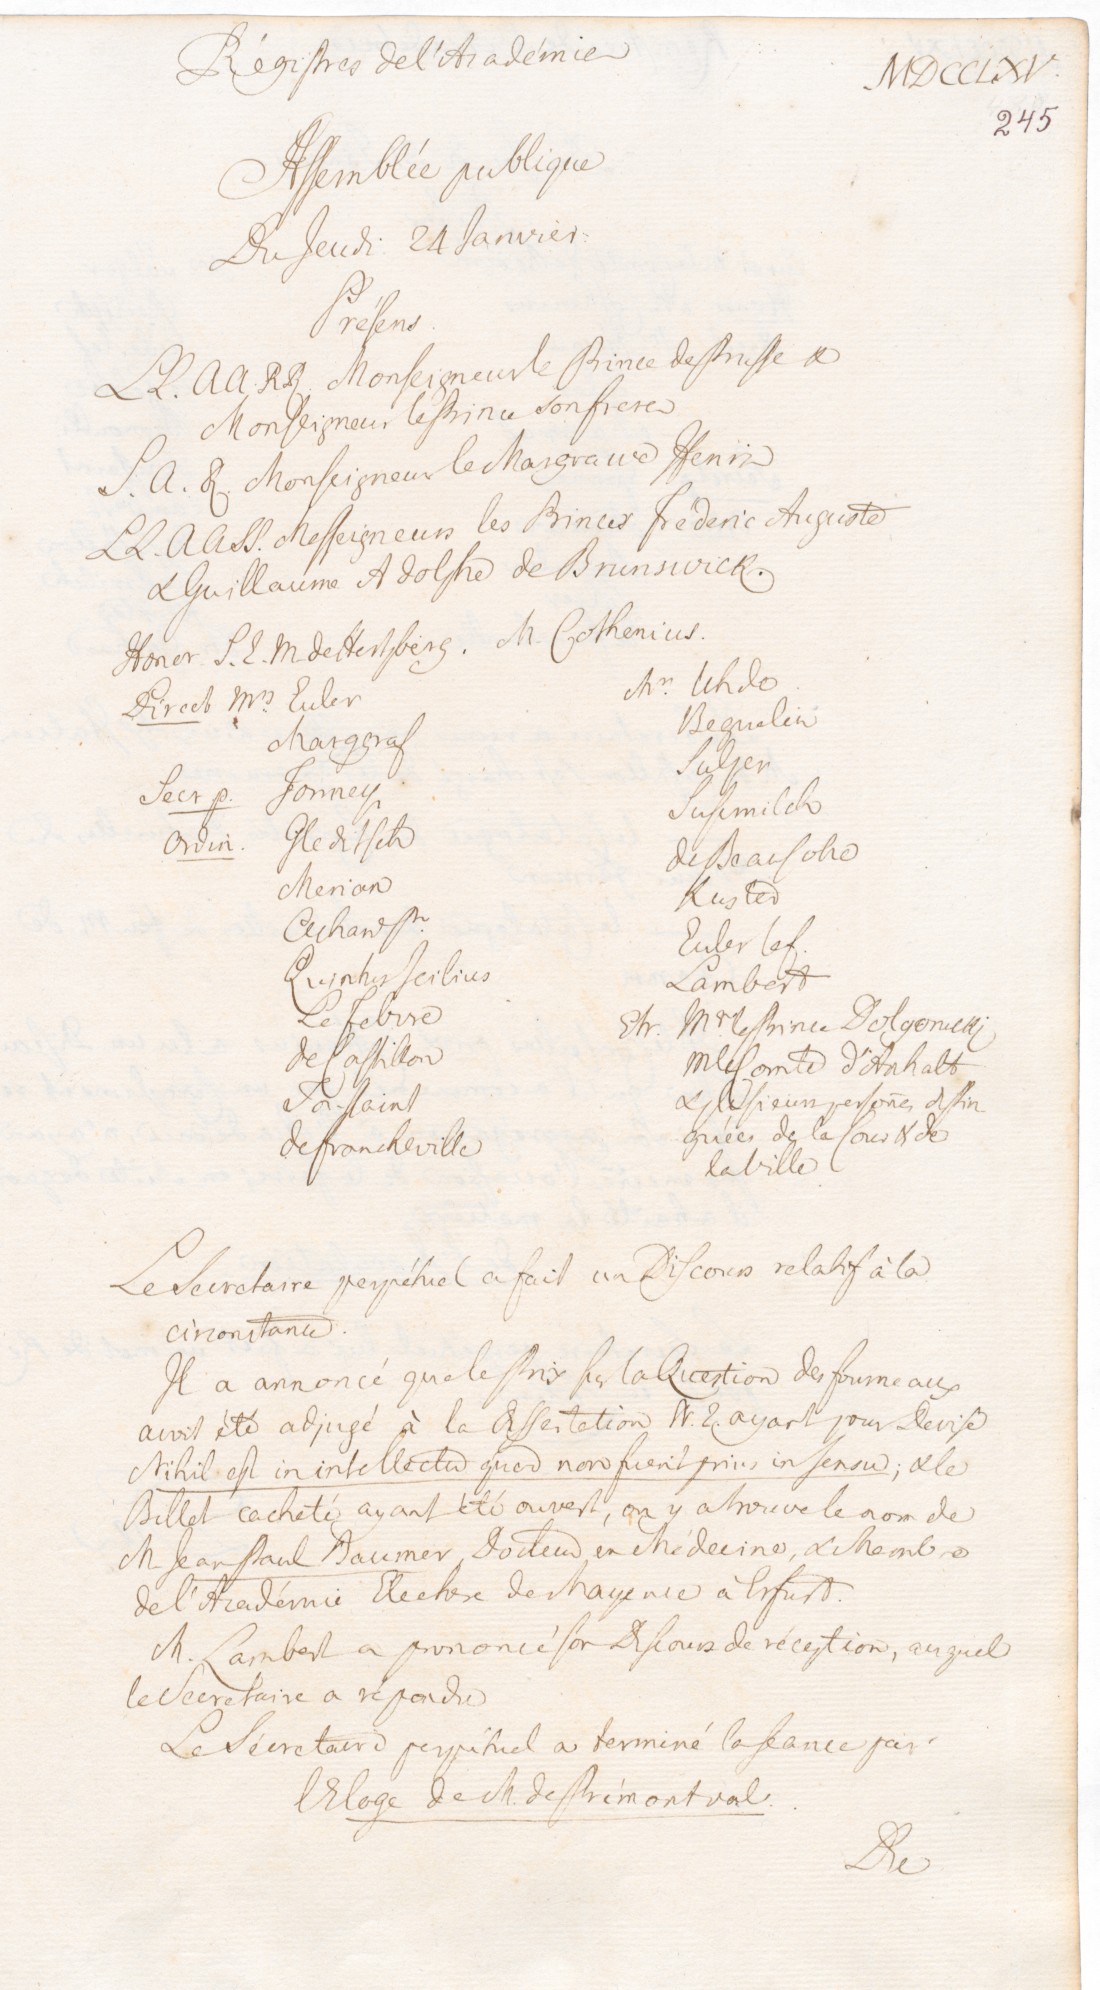 Régistres de l'Académie
MDCCLXV.
245
Assemblée publique
Du Jeudi 24 Janvier.
Présens.
LL. AA. RR. Monseigneur le Prince de Prusse &
Monseigneur le Prince son frere
S. A. R. Monseigneur le Margrave Henri
LL. AA SS. Messeigneurs les Princes Fréderic Auguste
& Guillaume Adolphe de Brunswick.
Honor. S. E. M. de Hertzberg. M. Cothenius.
Direct Mrs. Euler
Marggraf
Secr. p. Formey
Ordin. Gleditsch
Merian
Quintus Icilius
Le Febvre
de Castillon
Toussaint
de Francheville
Mrs. Uhde
Beguelin
Sulzer
Susmilch
de Beausobre
Kuster
Euler le f.
Lambert
Etr. Mr le Prince Dolgorucki
M le Comte d'Anhalt
& plusieurs persoñes distin
guées de la Cour & de
la Ville.
Le Secretaire perpétuel a fait un Discours relatif à la
circonstance.
Il a annoncé que le Prix sur la Question des fourneaux
avoit été adjugé à la Dissertation N. 2. ayant pour Devise
Nihil est in intellectu quod non fuerit prius in sensu; & le
Billet cacheté ayant été ouvert, on y a trouvé le nom de
M. Jean Paul Baumer, Docteur en Médecine, & Membre
de l'Académie Electore de Mayence à Erfurt.
M. Lambert a prononcé son Discours de réception, auquel
le Secrétaire a répondu
Le Sécretaire perpétuel a terminé la séance par
l'Eloge de M. de Prémontval.
De